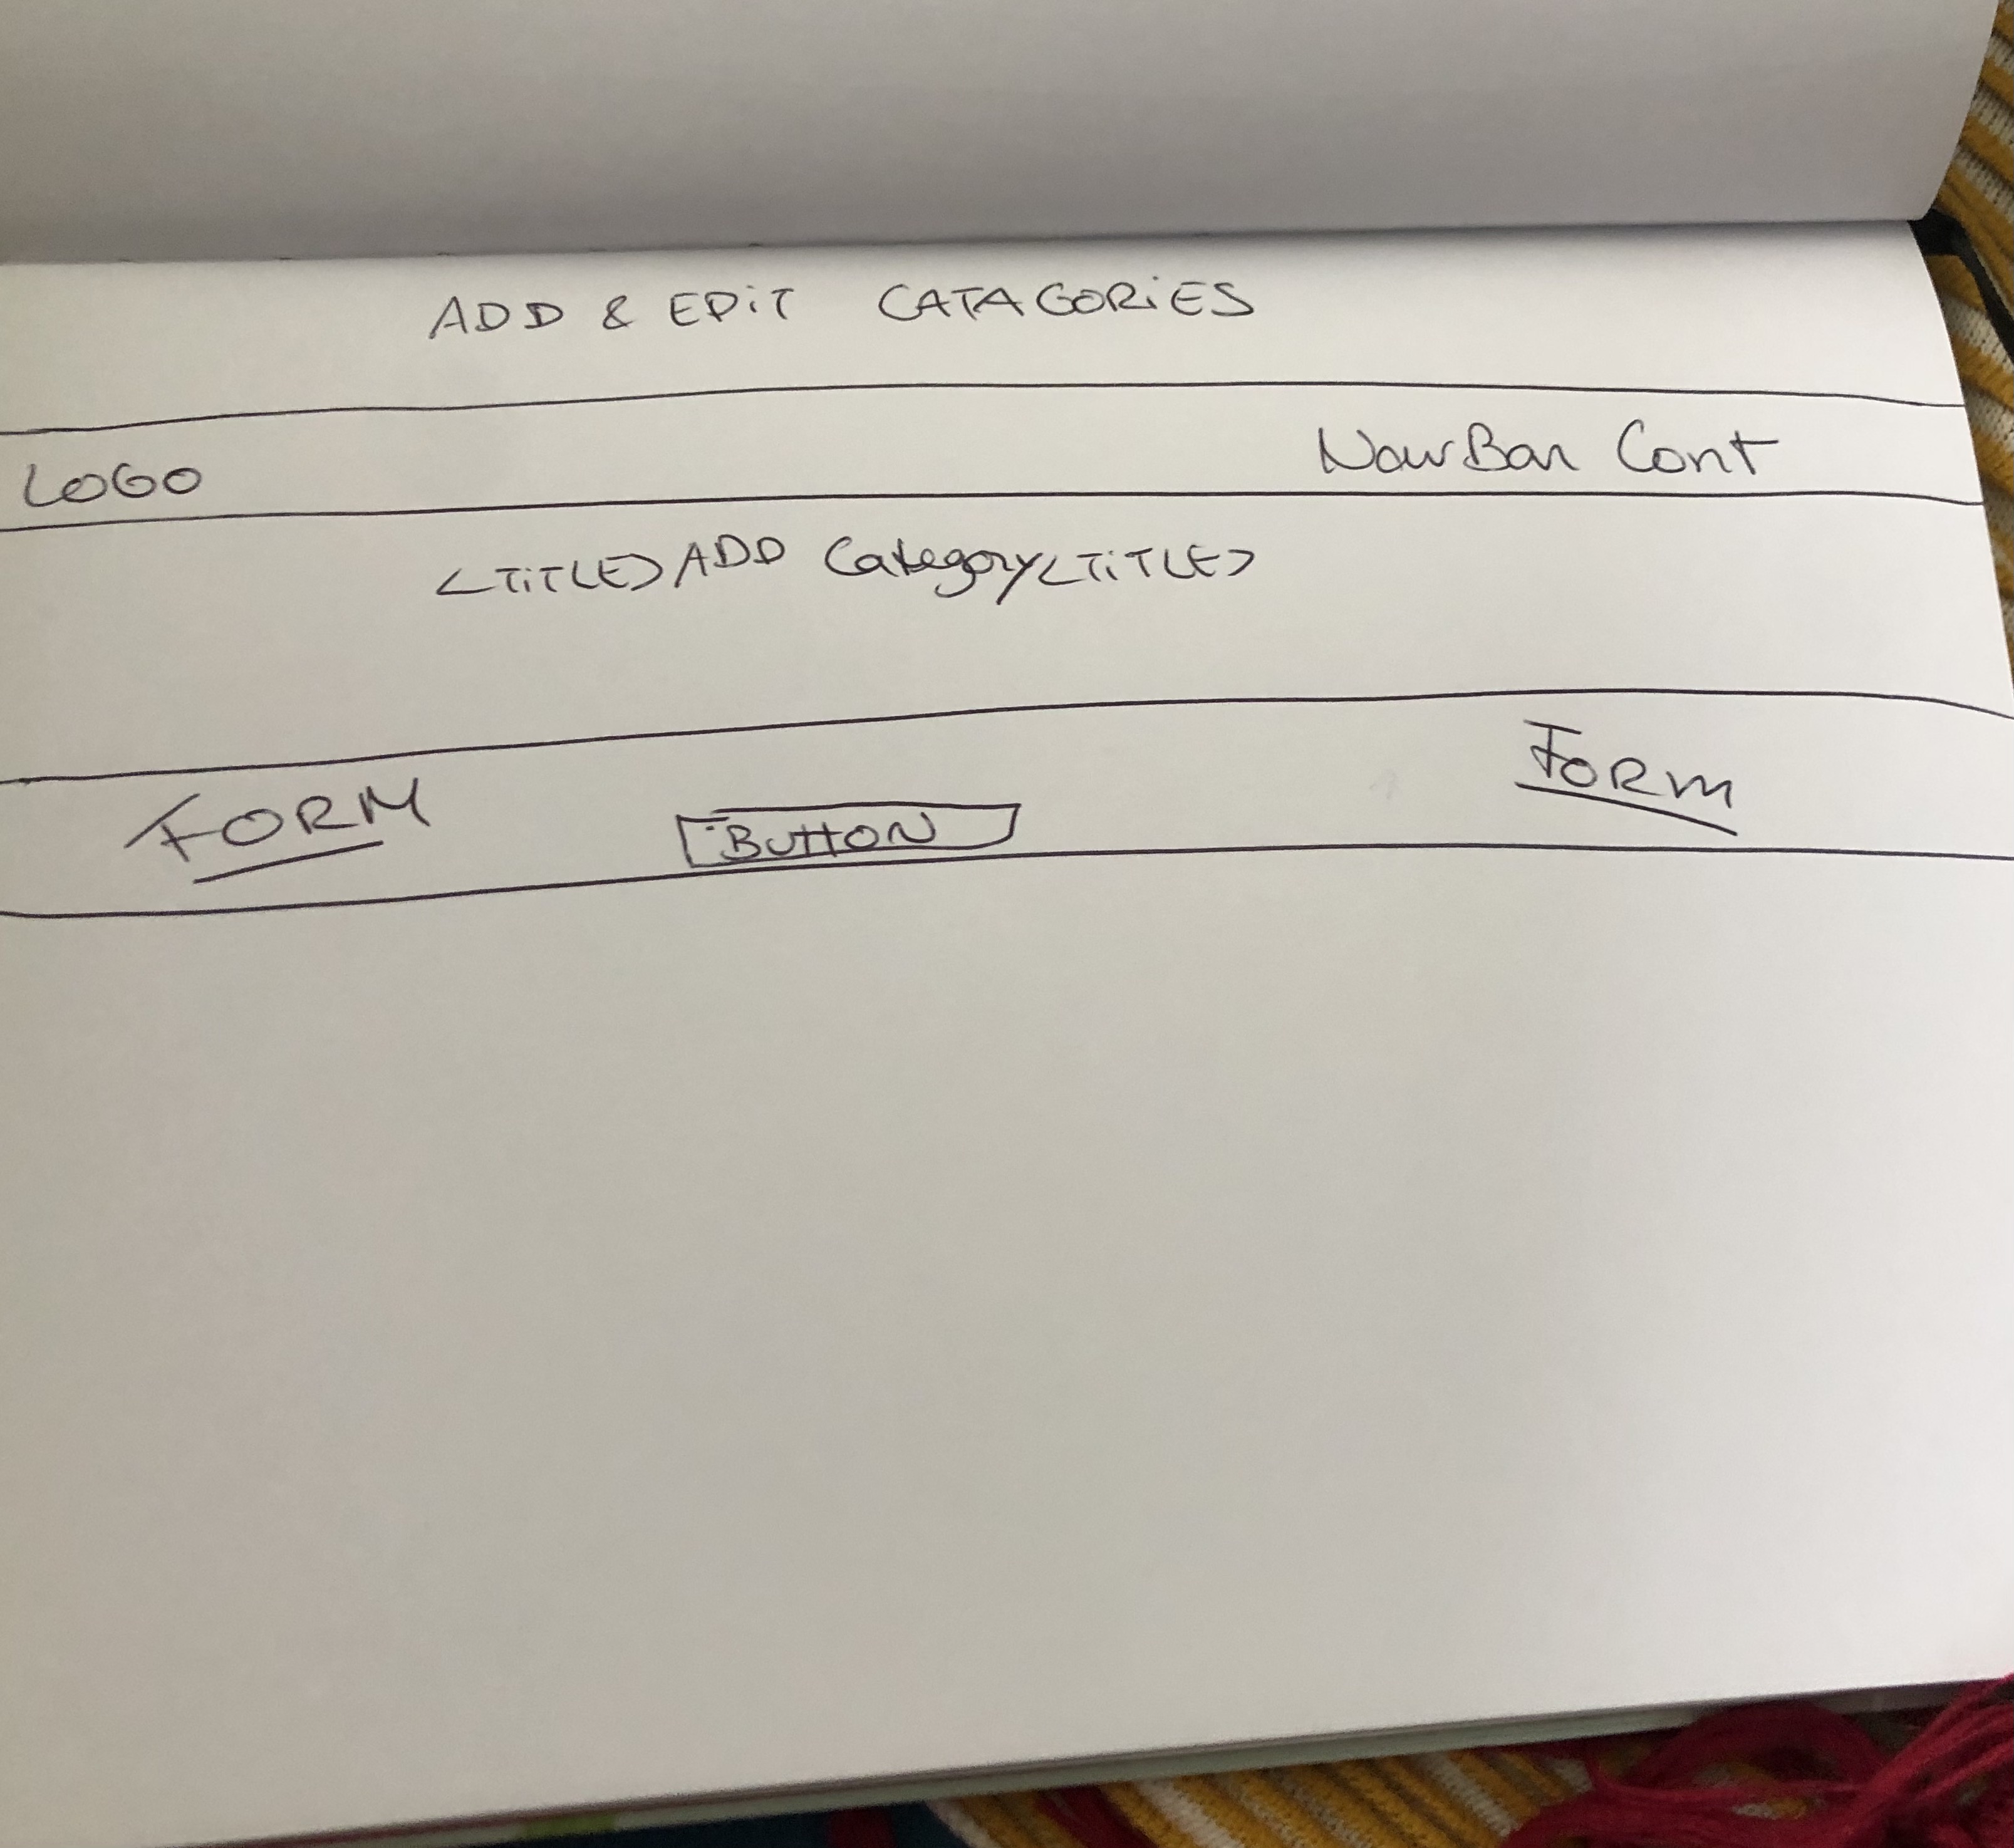 ADD & EDiT CATAGORiES
LOGO NavBar Cont
<TiTLE>ADD Category<TiTLE>
FORM BUTTON FORM